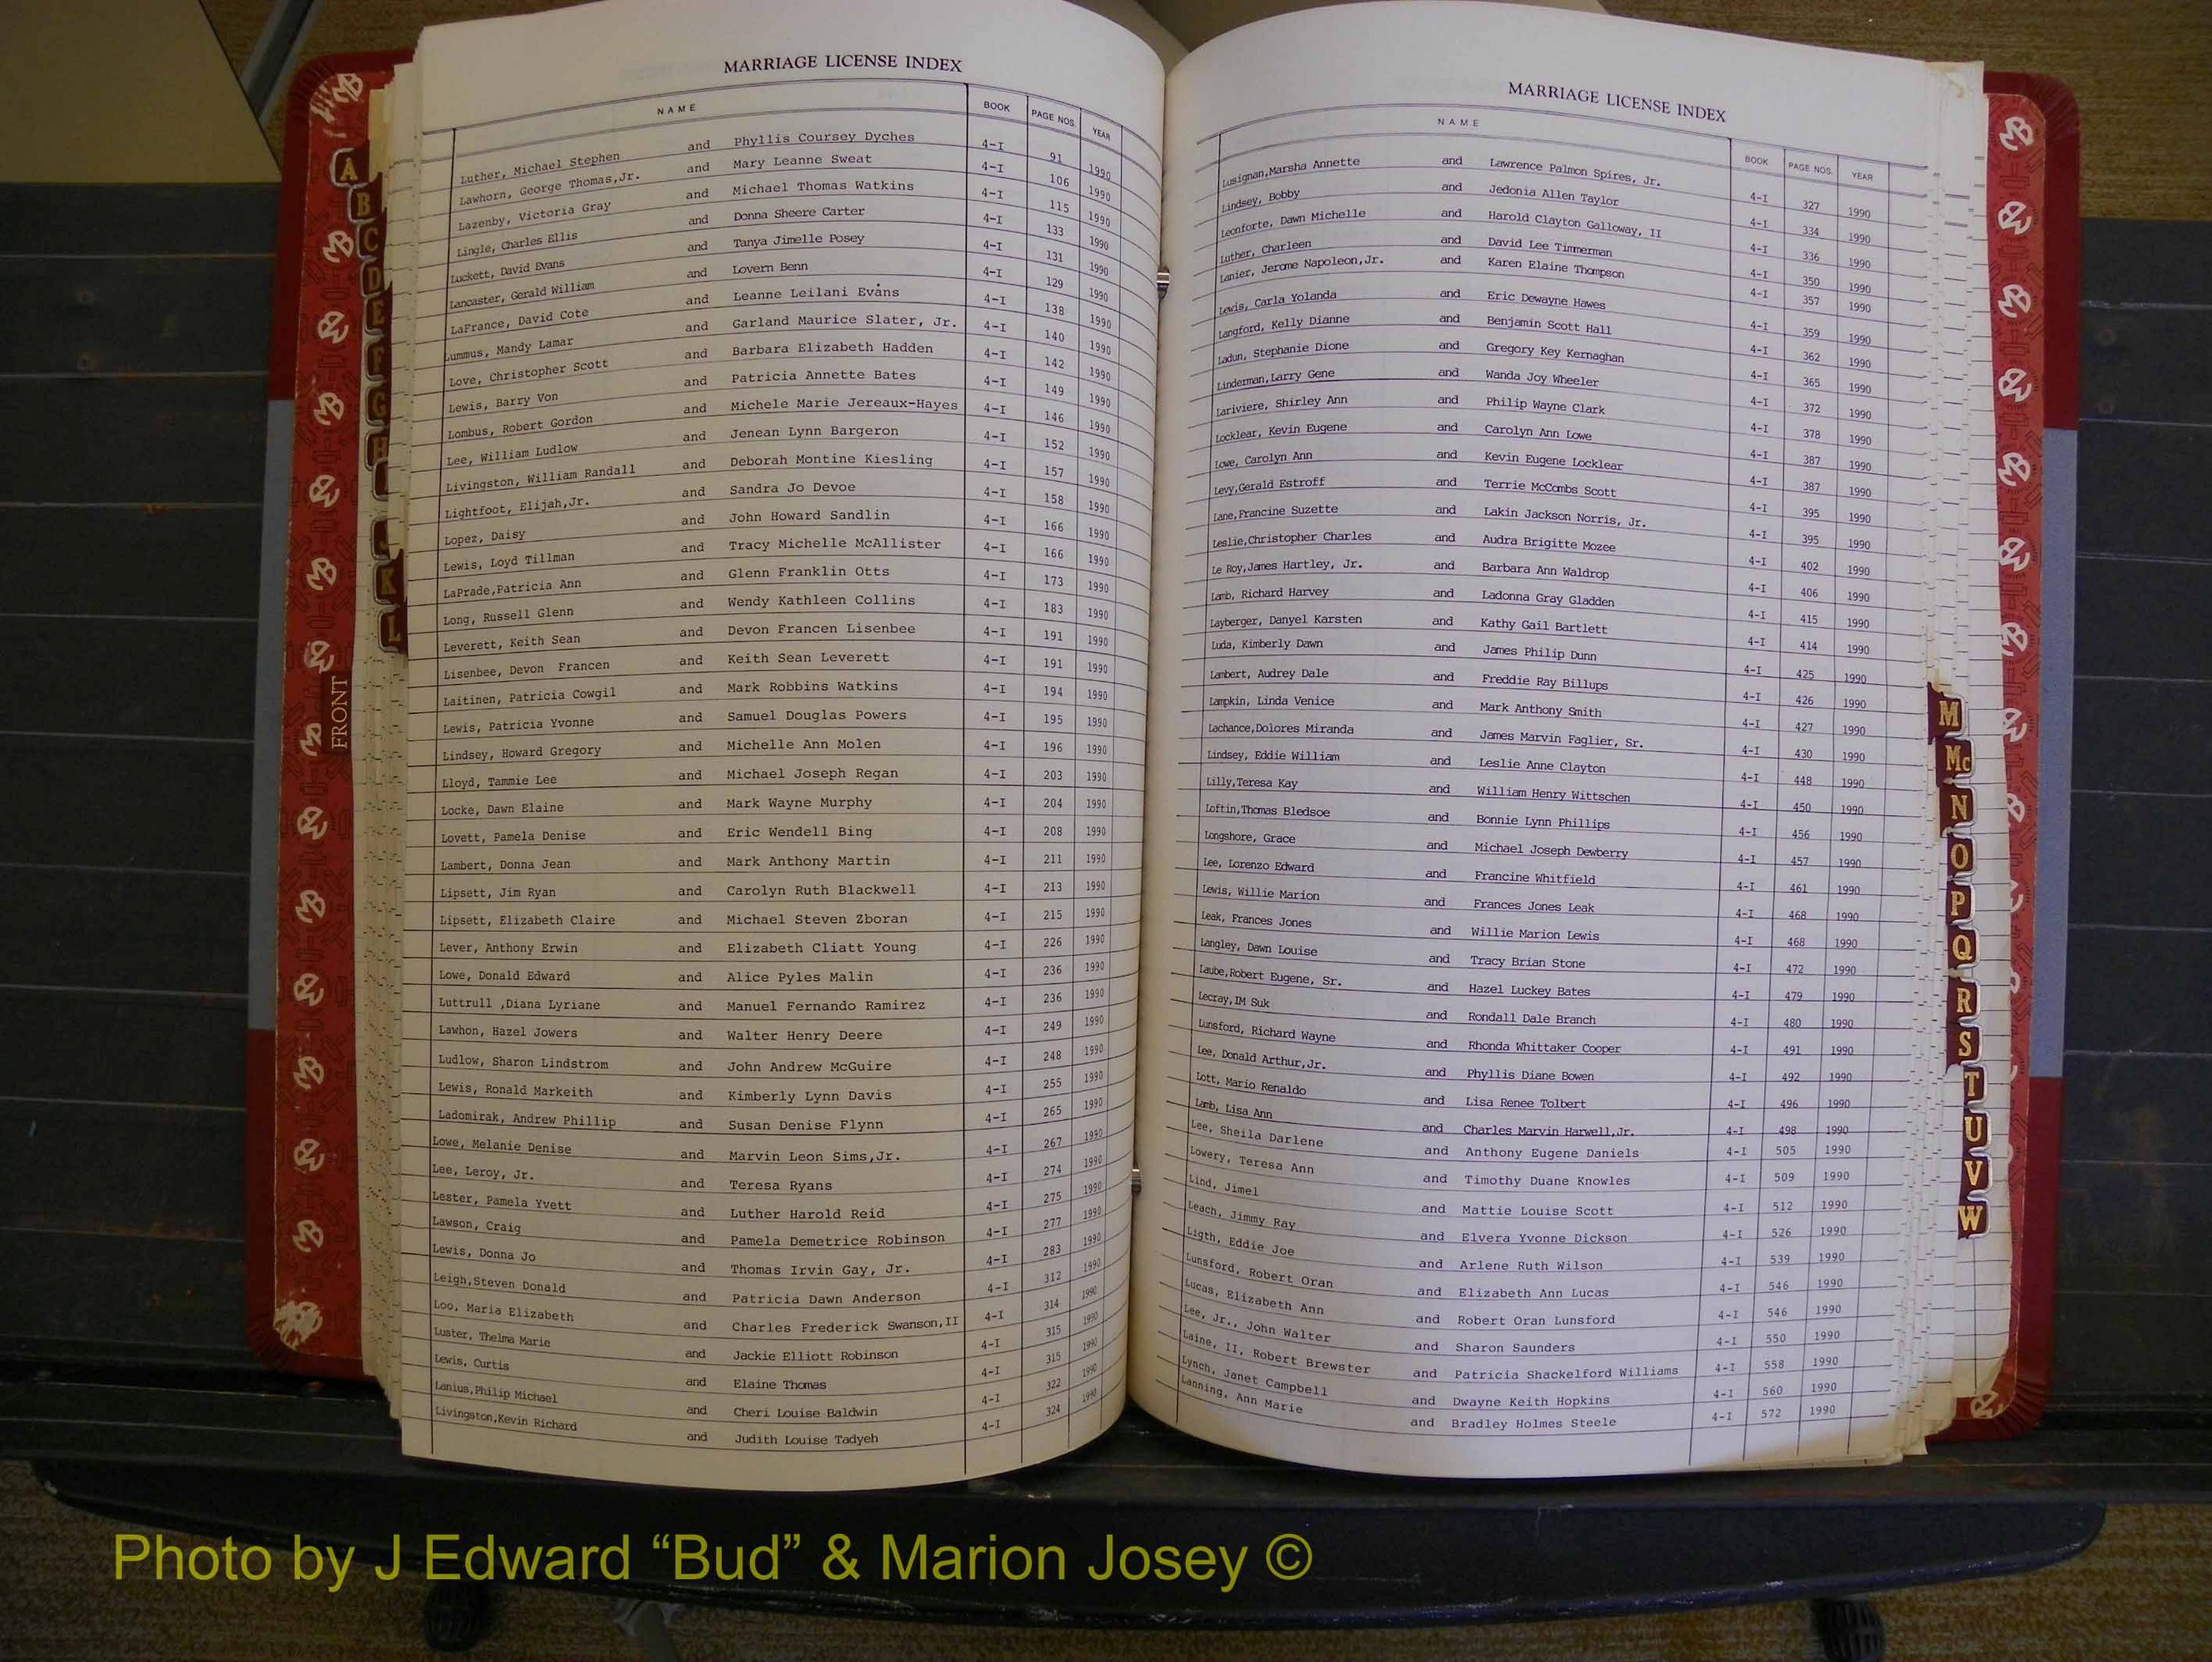 MARRIAGE LICENSE INDEX
NAME BOOK PAGE NOS. YEAR
Luther, Michael Stephen and Phyllis Coursey Dyches 4-I 91 1990
Lawhorn, George Thomas,Jr. and Mary Leanne Sweat 4-I 106 1990
Lazenby, Victoria Gray and Michael Thomas Watkins 4-I 115 1990
Lingle, Charles Ellis and Donna Sheere Carter 4-I 133 1990
Luckett, David Evans and Tanya Jimelle Posey 4-I 131 1990
Lancaster, Gerald William and Lovern Benn 4-I 129 1990
LaFrance, David Cote and Leanne Leilani Evans 4-I 138 1990
Lummus, Mandy Lamar and Garland Maurice Slater, Jr. 4-I 140 1990
Love, Christopher Scott and Barbara Elizabeth Hadden 4-I 142 1990
Lewis, Barry Von and Patricia Annette Bates 4-I 149 1990
Lombus, Robert Gordon and Michele Marie Jereaux-Hayes 4-I 146 1990
Lee, William Ludlow and Jenean Lynn Bargeron 4-I 152 1990
Livingston, William Randall and Deborah Montine Kiesling 4-I 157 1990
Lightfoot, Elijah,Jr. and Sandra Jo Devoe 4-I 158 1990
Lopez, Daisy and John Howard Sandlin 4-I 166 1990
Lewis, Loyd Tillman and Tracy Michelle McAllister 4-I 166 1990
LaPrade,Patricia Ann and Glenn Franklin Otts 4-I 173 1990
Long, Russell Glenn and Wendy Kathleen Collins 4-I 183 1990
Leverett, Keith Sean and Devon Francen Lisenbee 4-I 191 1990
Lisenbee, Devon Francen and Keith Sean Leverett 4-I 191 1990
Laitinen, Patricia Cowgil and Mark Robbins Watkins 4-I 194 1990
Lewis, Patricia Yvonne and Samuel Douglas Powers 4-I 195 1990
Lindsey, Howard Gregory and Michelle Ann Molen 4-I 196 1990
Lloyd, Tammie Lee and Michael Joseph Regan 4-I 203 1990
Locke, Dawn Elaine and Mark Wayne Murphy 4-I 204 1990
Lovett, Pamela Denise and Eric Wendell Bing 4-I 208 1990
Lambert, Donna Jean and Mark Anthony Martin 4-I 211 1990
Lipsett, Jim Ryan and Carolyn Ruth Blackwell 4-I 213 1990
Lipsett, Elizabeth Claire and Michael Steven Zboran 4-I 215 1990
Lever, Anthony Erwin and Elizabeth Cliatt Young 4-I 226 1990
Lowe, Donald Edward and Alice Pyles Malin 4-I 236 1990
Luttrull ,Diana Lyriane and Manuel Fernando Ramirez 4-I 236 1990
Lawhon, Hazel Jowers and Walter Henry Deere 4-I 249 1990
Ludlow, Sharon Lindstrom and John Andrew McGuire 4-I 248 1990
Lewis, Ronald Markeith and Kimberly Lynn Davis 4-I 255 1990
Ladomirak, Andrew Phillip and Susan Denise Flynn 4-I 265 1990
Lowe, Melanie Denise and Marvin Leon Sims,Jr. 4-I 267 1990
Lee, Leroy, Jr. and Teresa Ryans 4-I 274 1990
Lester, Pamela Yvett and Luther Harold Reid 4-I 275 1990
Lawson, Craig and Pamela Demetrice Robinson 4-I 277 1990
Lewis, Donna Jo and Thomas Irvin Gay, Jr. 4-I 283 1990
Leigh,Steven Donald and Patricia Dawn Anderson 4-I 312 1990
Loo, Maria Elizabeth and Charles Frederick Swanson,II 4-I 314 1990
Luster, Thelma Marie and Jackie Elliott Robinson 4-I 315 1990
Lewis, Curtis and Elaine Thomas 4-I 315 1990
Lanius,Philip Michael and Cheri Louise Baldwin 4-I 322 1990
Livingston,Kevin Richard and Judith Louise Tadyeh 4-I 324 1990
MARRIAGE LICENSE INDEX
NAME BOOK PAGE NOS. YEAR
Lusignan,Marsha Annette and Lawrence Palmon Spires, Jr. 4-I 327 1990
Lindsey, Bobby and Jedonia Allen Taylor 4-I 334 1990
Leonforte, Dawn Michelle and Harold Clayton Galloway, II 4-I 336 1990
Luther, Charleen and David Lee Timmerman 4-I 350 1990
Lanier, Jerome Napoleon,Jr. and Karen Elaine Thompson 4-I 357 1990
Lewis, Carla Yolanda and Eric Dewayne Hawes 4-I 359 1990
Langford, Kelly Dianne and Benjamin Scott Hall 4-I 362 1990
Ladun, Stephanie Dione and Gregory Key Kernaghan 4-I 365 1990
Linderman,Larry Gene and Wanda Joy Wheeler 4-I 372 1990
Lariviere, Shirley Ann and Philip Wayne Clark 4-I 378 1990
Locklear, Kevin Eugene and Carolyn Ann Lowe 4-I 387 1990
Lowe, Carolyn Ann and Kevin Eugene Locklear 4-I 387 1990
Levy,Gerald Estroff and Terrie McCombs Scott 4-I 395 1990
Lane,Francine Suzette and Lakin Jackson Norris, Jr. 4-I 395 1990
Leslie,Christopher Charles and Audra Brigitte Mozee 4-I 402 1990
Le Roy,James Hartley, Jr. and Barbara Ann Waldrop 4-I 406 1990
Lamb, Richard Harvey and Ladonna Gray Gladden 4-I 415 1990
Layberger, Danyel Karsten and Kathy Gail Bartlett 4-I 414 1990
Luda, Kimberly Dawn and James Philip Dunn 4-I 425 1990
Lambert, Audrey Dale and Freddie Ray Billups 4-I 426 1990
Lampkin, Linda Venice and Mark Anthony Smith 4-I 427 1990
Lachance,Dolores Miranda and James Marvin Faglier, Sr. 4-I 430 1990
Lindsey, Eddie William and Leslie Anne Clayton 4-I 448 1990
Lilly,Teresa Kay and William Henry Wittschen 4-I 450 1990
Loftin,Thomas Bledsoe and Bonnie Lynn Phillips 4-I 456 1990
Longshore, Grace and Michael Joseph Dewberry 4-I 457 1990
Lee, Lorenzo Edward and Francine Whitfield 4-I 461 1990
Lewis, Willie Marion and Frances Jones Leak 4-I 468 1990
Leak, Frances Jones and Willie Marion Lewis 4-I 468 1990
Langley, Dawn Louise and Tracy Brian Stone 4-I 472 1990
Laube,Robert Eugene, Sr. and Hazel Luckey Bates 4-I 479 1990
Lecray,IM Suk and Rondall Dale Branch 4-I 480 1990
Lunsford, Richard Wayne and Rhonda Whittaker Cooper 4-I 491 1990
Lee, Donald Arthur,Jr. and Phyllis Diane Bowen 4-I 492 1990
Lott, Mario Renaldo and Lisa Renee Tolbert 4-I 496 1990
Lamb, Lisa Ann and Charles Marvin Harwell,Jr. 4-I 498 1990
Lee, Sheila Darlene and Anthony Eugene Daniels 4-I 505 1990
Lowery, Teresa Ann and Timothy Duane Knowles 4-I 509 1990
Lind, Jimel and Mattie Louise Scott 4-I 512 1990
Leach, Jimmy Ray and Elvera Yvonne Dickson 4-I 526 1990
Ligth, Eddie Joe and Arlene Ruth Wilson 4-I 539 1990
Lunsford, Robert Oran and Elizabeth Ann Lucas 4-I 546 1990
Lucas, Elizabeth Ann and Robert Oran Lunsford 4-I 546 1990
Lee, Jr., John Walter and Sharon Saunders 4-I 550 1990
Laine, II, Robert Brewster and Patricia Shackelford Williams 4-I 558 1990
Lynch, Janet Campbell and Dwayne Keith Hopkins 4-I 560 1990
Lanning, Ann Marie and Bradley Holmes Steele 4-I 572 1990
A
B
C
D
E
F
G
H
K
L
FRONT
M
Mc
N
O
P
Q
R
S
T
U
V
W
Photo by J Edward “Bud” & Marion Josey ©